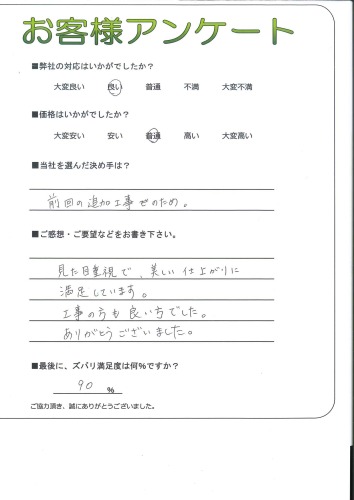 お客様アンケート
■弊社の対応はいかがでしたか？
大変良い 良い 普通 不満 大変不満
■価格はいかがでしたか？
大変安い 安い 普通 高い 大変高い
■当社を選んだ決め手は？
前回の追加工事そのため。
■ご感想・ご要望などをお書き下さい。
見た目重視で、美しい仕上がりに
満足しています。
工事の方も良い方でした。
ありがとうございました。
■最後に、ズバリ満足度は何%ですか？
90 %
ご協力頂き、誠にありがとうございました。